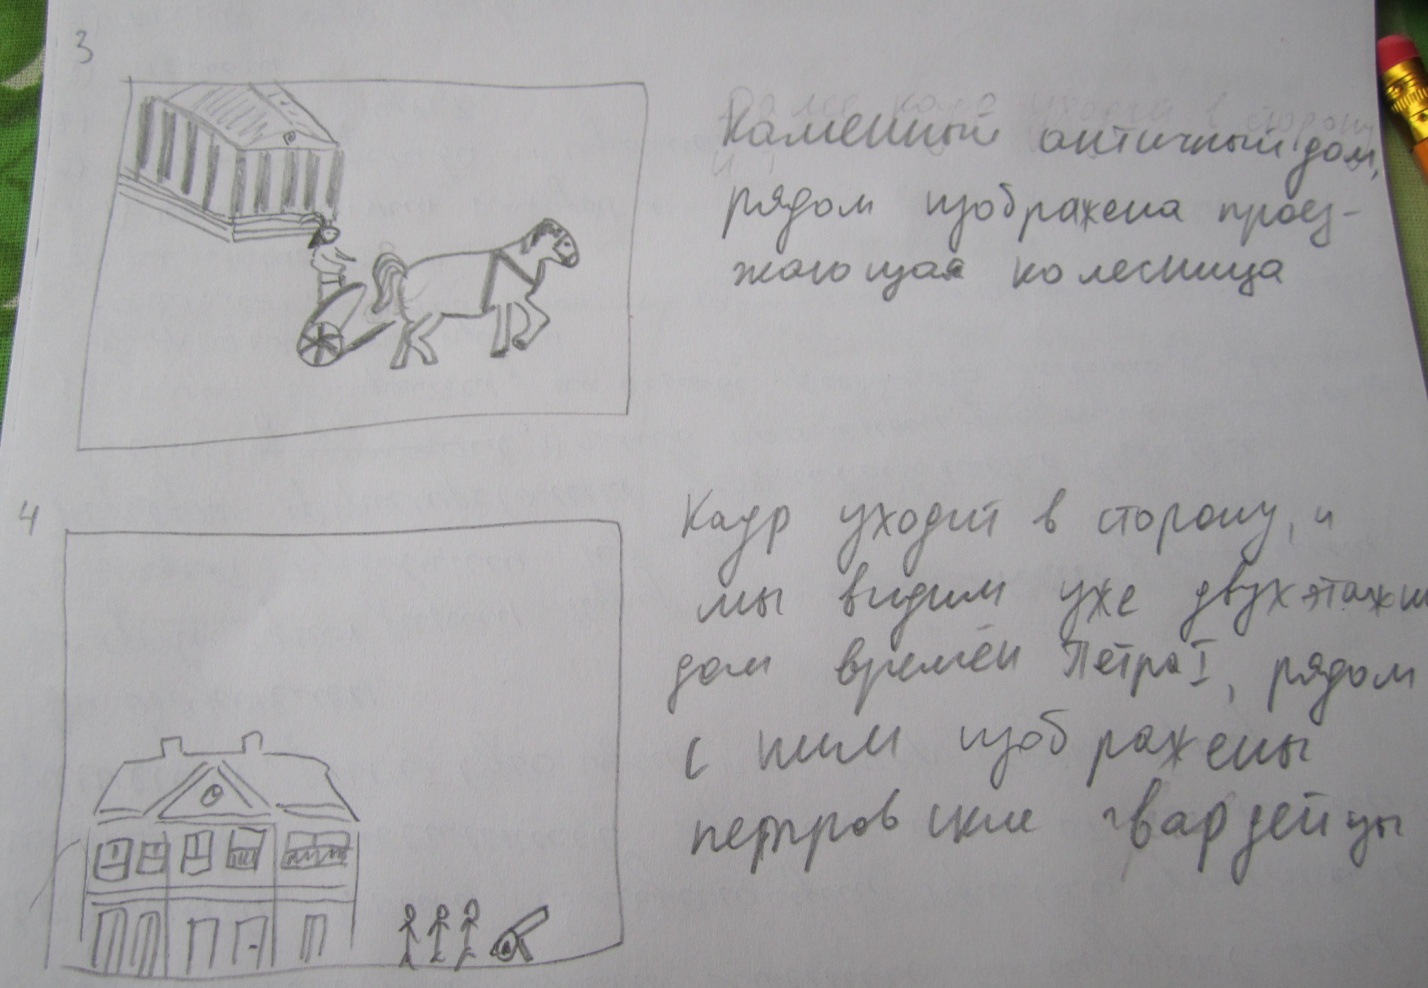 3
Каменный античный дом,
рядом изображена проез-
жающая колесница
4
Кадр уходит в сторону, и
мы видим уже двухэтажн
дом времён Петра I, рядом
с ним изображены
петровские гвардейцы